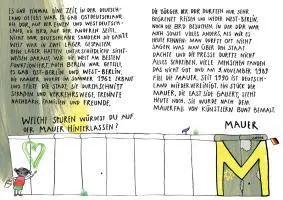 ES GAB EINMAL EINE ZEIT, IN DER DEUTSCH-
LAND GETEILT WAR. ES GAB OSTDEUTSCHLAND,
DIE DDR, AUF DER EINEN UND WESTDEUTSCH-
LAND, DIE BRD, AUF DER ANDEREN SEITE.
NICHT NUR DEUTSCHLAND SONDERN DIE GANZE
WELT WAR IN ZWEI LAGER GESPALTEN.
BERLIN WAR GETEILT
ES GAB OST-BERLIN UND WEST-BERLIN.
DIE MAUER WURDE IM SOMMER 1961 GEBAUT
UND TEILTE DIE STADT. SIE DURCHSCHNITT
STRAßEN UND VERKEHRSWEGE, TRENNTE
NACHBARN, FAMILIEN UND FREUNDE.
DIE BÜRGER DER DDR DURFTEN NUR SEHR
BEGRENZT REISEN UND WEDER WEST-BERLIN,
NOCH DIE BRD BESUCHEN. IN DER DDR WAR
AUCH SONST VIELES ANDERS, ALS WIR ES
HEUTE KENNEN. MAN DURFTE OFT NICHT
SAGEN WAS MAN ÜBER DEN STAAT
DACHTE UND DIE PRESSE DURFTE NICHT
ALLES SCHREIBEN. VIELE MENSCHEN FANDEN
DAS NICHT GUT UND AM 9. NOVEMBER 1989
FIEL DIE MAUER. SEIT 1990 IST DEUTSCH-
LAND WIEDERVEREINIGT. EIN STÜCK DER
MAUER, DIE EAST SIDE GALLERY, STEHT
HEUTE NOCH. SIE WURDE NACH DEM
MAUERFALL VON KÜNSTLERN BUNT BEMALT.
WELCHE SPUREN WÜRDEST DU AUF
DER MAUER HINTERLASSEN?
MAUER
M